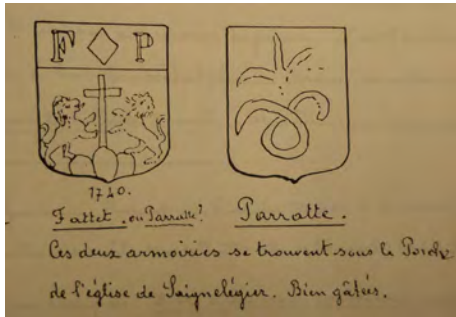 F P
1740.
Fattet. ou Parratte? Parratte.
Ces deux armoiries se trouvent sous le Porche
de l'église de Saignelégier. Bien gâtées.